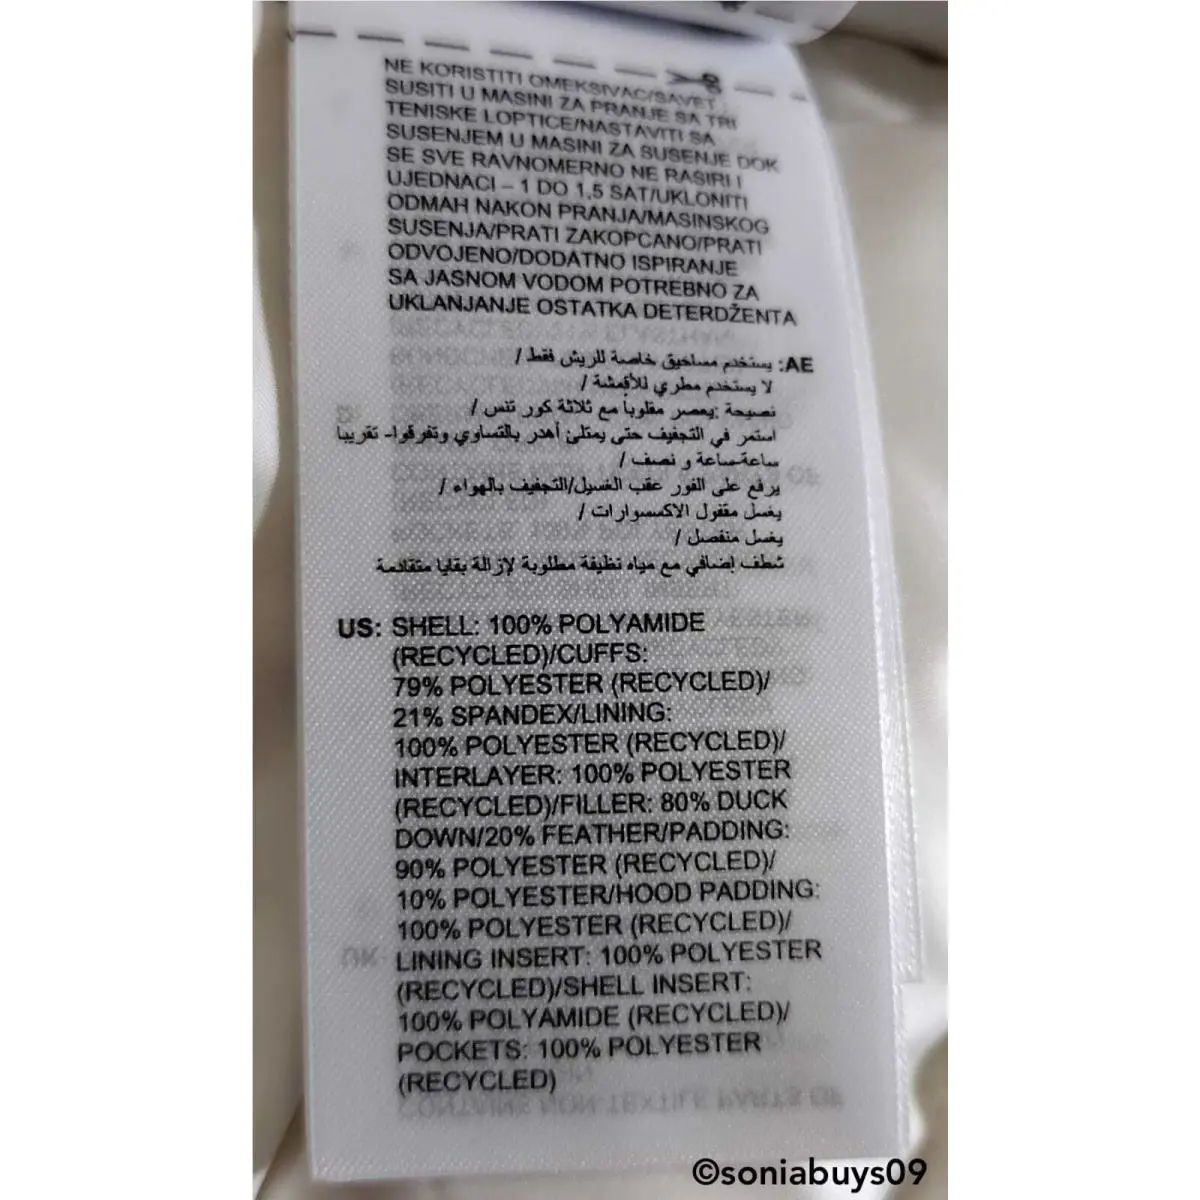 NE KORISTITI OMEKSIVAC/SAVET :
SUSITI U MASINI ZA PRANJE SA TRI
TENISKE LOPTICE/NASTAVITI SA
SUSENJEM U MASINI ZA SUSENJE DOK
SE SVE RAVNOMERNO NE RASIRI I
UJEDNACI – 1 DO 1,5 SAT/UKLONITI
ODMAH NAKON PRANJA/MASINSKOG
SUSENJA/PRATI ZAKOPCANO/PRATI
ODVOJENO/DODATNO ISPIRANJE
SA JASNOM VODOM POTREBNO ZA
UKLANJANJE OSTATKA DETERDŽENTA
AE: يستخدم مساحيق خاصة للريش فقط /
لا يستخدم مطري للأقمشة /
نصيحة :يعصر مقلوباً مع ثلاثة كور تنس /
استمر في التجفيف حتى يمتلئ أهدر بالتساوي وتفرقوا- تقريبا
ساعة-ساعة و نصف /
يرفع على الفور عقب الغسيل/التجفيف بالهواء /
يغسل مقفول الاكسسوارات /
يغسل منفصل /
شطف إضافي مع مياه نظيفة مطلوبة لإزالة بقايا متقادمة
US: SHELL: 100% POLYAMIDE
(RECYCLED)/CUFFS:
79% POLYESTER (RECYCLED)/
21% SPANDEX/LINING:
100% POLYESTER (RECYCLED)/
INTERLAYER: 100% POLYESTER
(RECYCLED)/FILLER: 80% DUCK
DOWN/20% FEATHER/PADDING:
90% POLYESTER (RECYCLED)/
10% POLYESTER/HOOD PADDING:
100% POLYESTER (RECYCLED)/
LINING INSERT: 100% POLYESTER
(RECYCLED)/SHELL INSERT:
100% POLYAMIDE (RECYCLED)/
POCKETS: 100% POLYESTER
(RECYCLED)
©soniabuys09